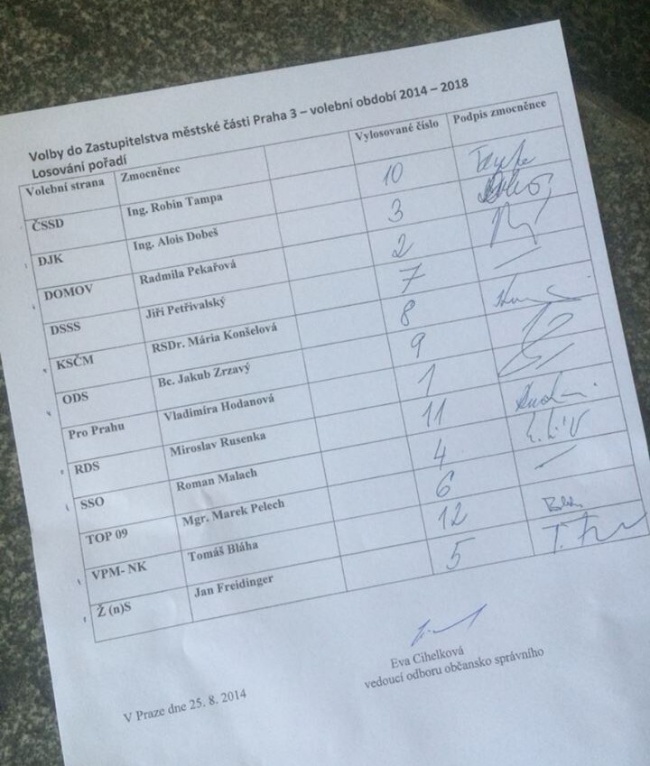 Volby do Zastupitelstva městské části Praha 3 – volební období 2014 – 2018
Losování pořadí
Volební strana Zmocněnec Vylosované číslo Podpis zmocněnce
ČSSD Ing. Robin Tampa 10
DJK Ing. Alois Dobeš 3
DOMOV Radmila Pekařová 2
DSSS Jiří Petřivalský 7
KSČM RSDr. Mária Konšelová 8
ODS Bc. Jakub Zrzavý 9
Pro Prahu Vladimíra Hodanová 1
RDS Miroslav Rusenka 11
SSO Roman Malach 4
TOP 09 Mgr. Marek Pelech 6
VPM- NK Tomáš Bláha 12
Ž (n)S Jan Freidinger 5
Eva Cihelková
vedoucí odboru občansko správního
V Praze dne 25. 8. 2014